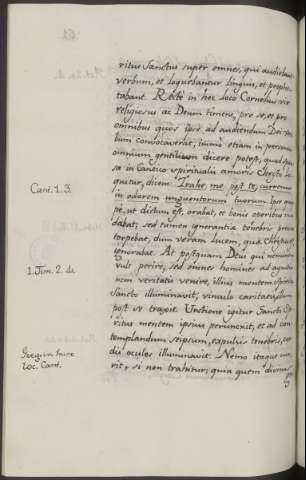 ritus Sanctus super omnes, qui audiebant
verbum, et loquebantur linguis, et prophe-
tabant. Recte in hoc loco Cornelius vir
religiosus ac Deum timens, pro se, et pro
omnibus quos ipse ad audiendum Dei
convocaverat, immo etiam in persona
omnium gentilium dicere potest, quod
sa in Cantico spiritualis amoris Christo
quitur, dicens: Trahe me post te, curremus
in odorem unguentorum tuorum. Ipse
pe, ut dictum est, orabat, et bonis operibus
dabat, sed tamen ignorantiæ tenebris
torpebat, dum veram lucem, quæ Christus
ignorabat. At postquam Deus qui neminem
vult perire, sed omnes homines ad agnitio-
nem veritatis venire, illius mentem
Sancto illuminavit, vinculo caritatis illum
post se traxit. Unctione igitur Sancti Spi-
ritus mentem ipsius perunxit, et ad con-
templandum seipsum, expulsis tenebris, cor-
dis oculos illuminavit. Nemo itaque
rit, si non trahitur; quia quem divina
Cant. 1. 3.
1. Tim. 2. 4.
Gregor. super
loc. Cant.